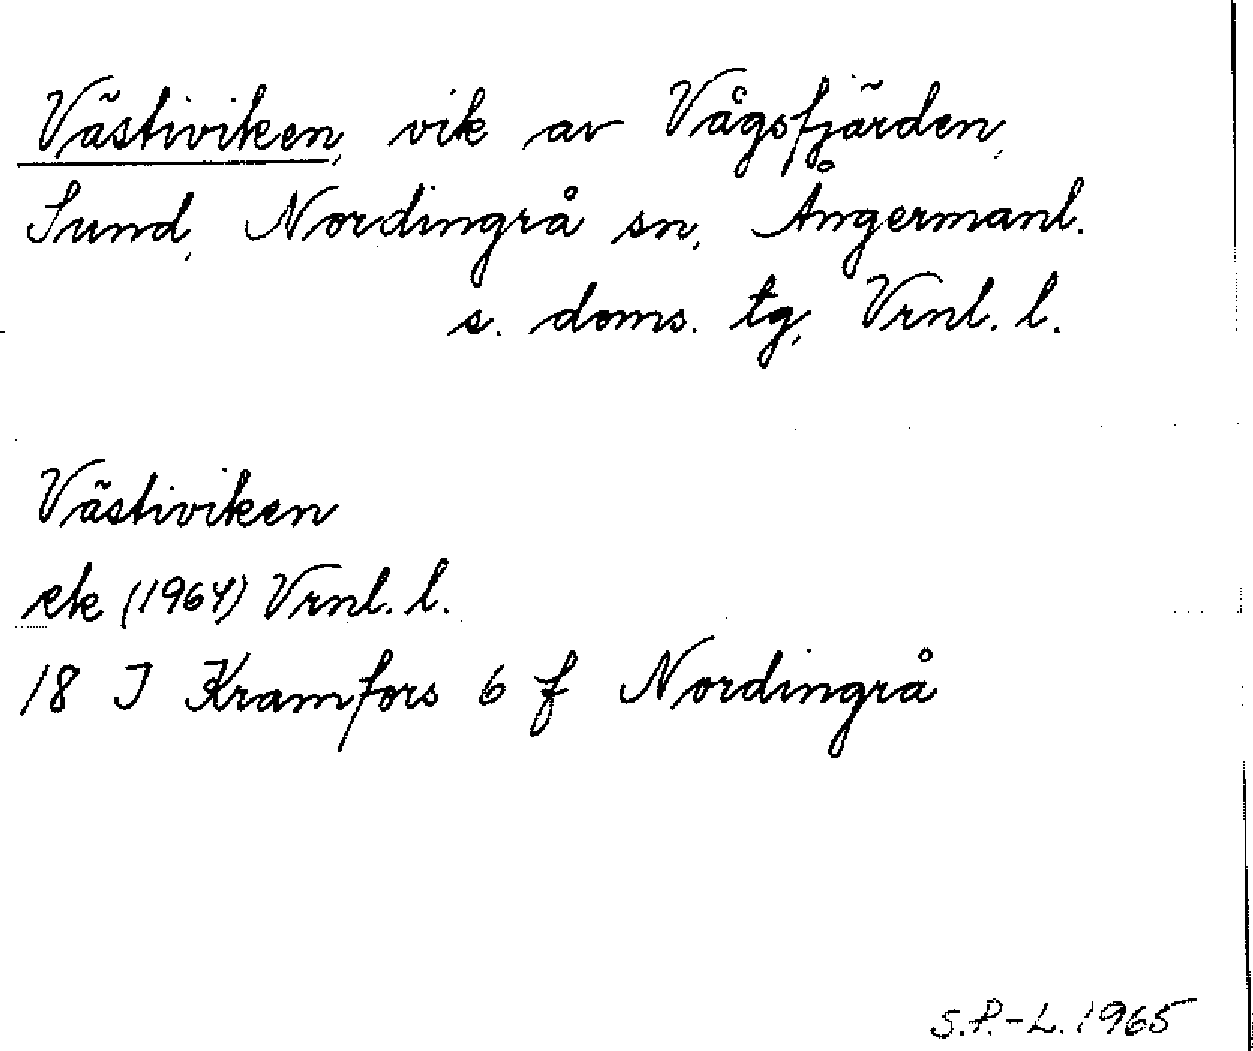 Västiviken, vik av Vågsfjärden,
Sund, Nordingrå sn, Ångermanl.
s. doms. tg, Vrnl. l.
Västiviken
ek (1964) Vrnl. l.
18 I Kramfors 6 f Nordingrå
S.P.-L. 1965